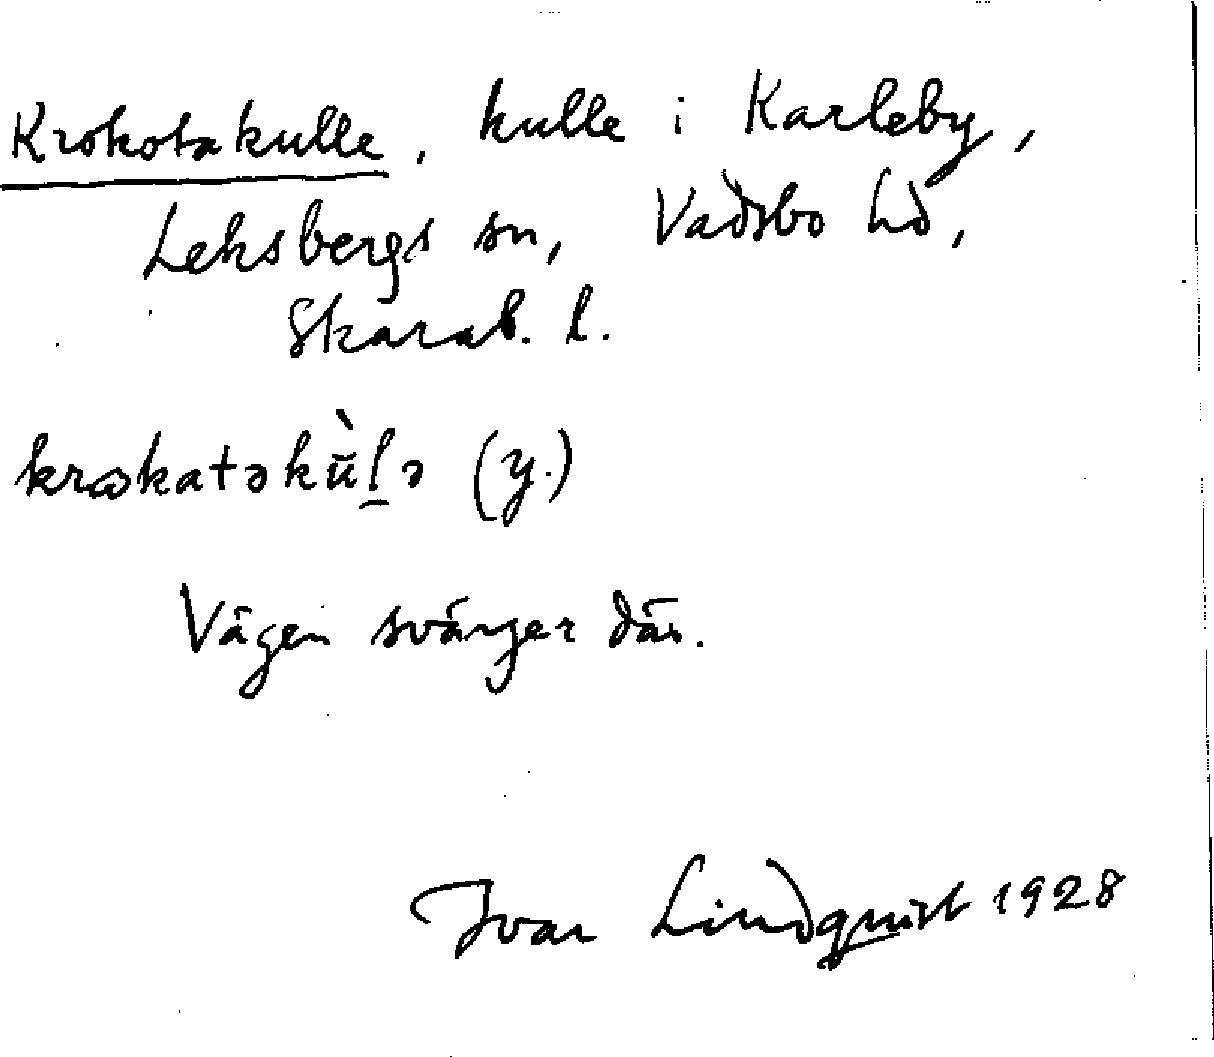 Krokotakulle, kulle i Karleby,
Leksbergs sn, Vadsbo hd,
Skarab. l.
krɷkatəkū̀lə (y.)
Vägen svänger där.
Ivar Lindquist 1928